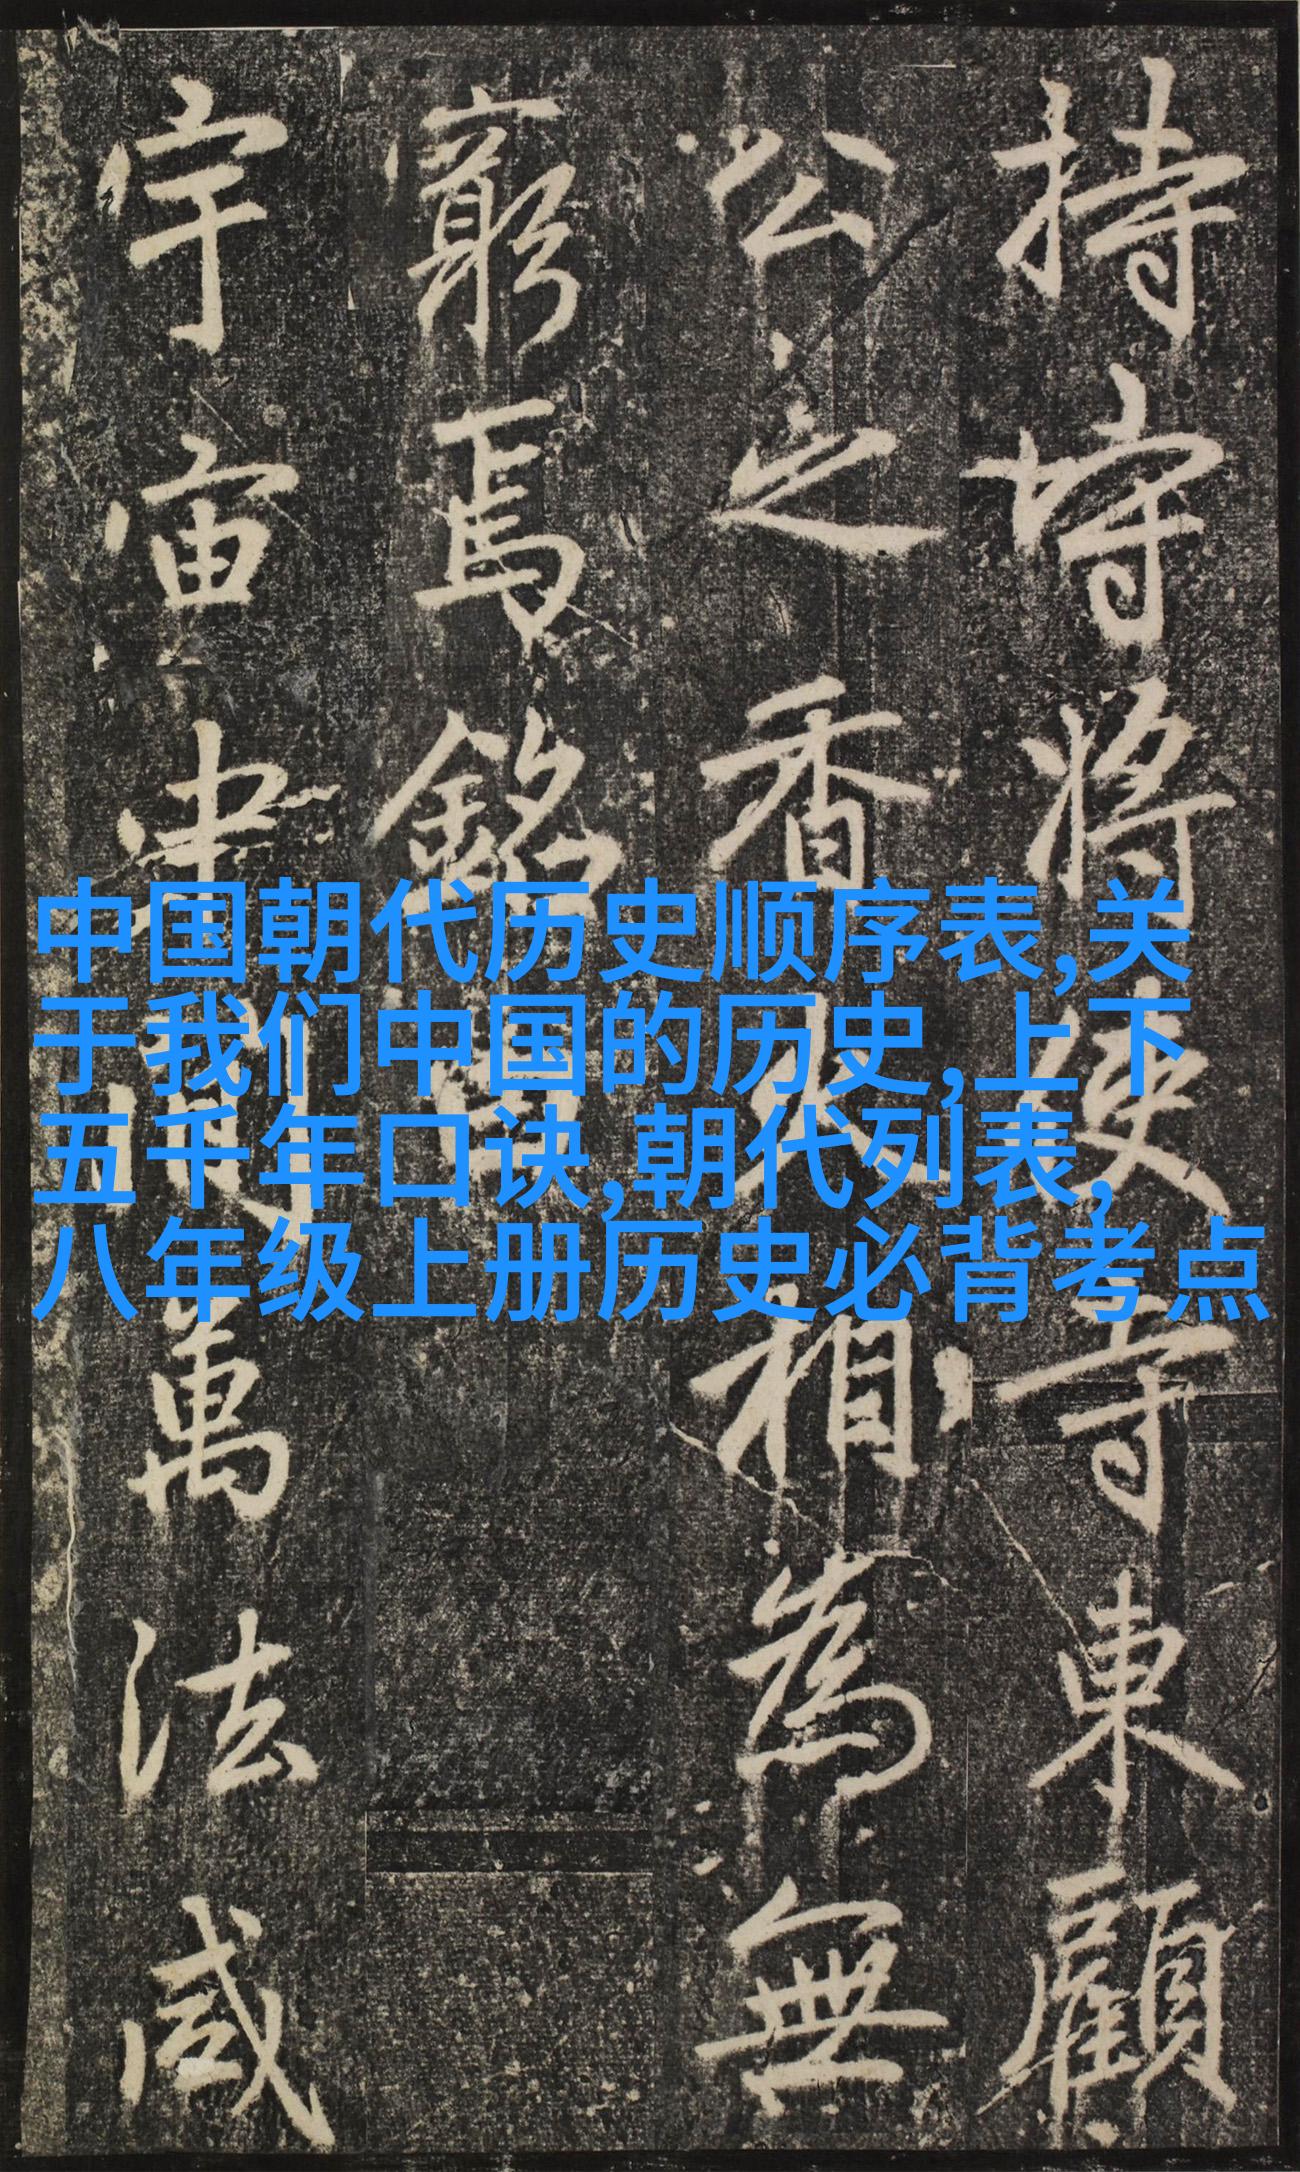 中国朝代历史顺序表,关
于我们中国的历史,上下
五千年口诀,朝代列表,
八年级上册历史必背考点
持将寺東顧
公之香火相為無
窮焉銘曰
宇宙間萬法咸